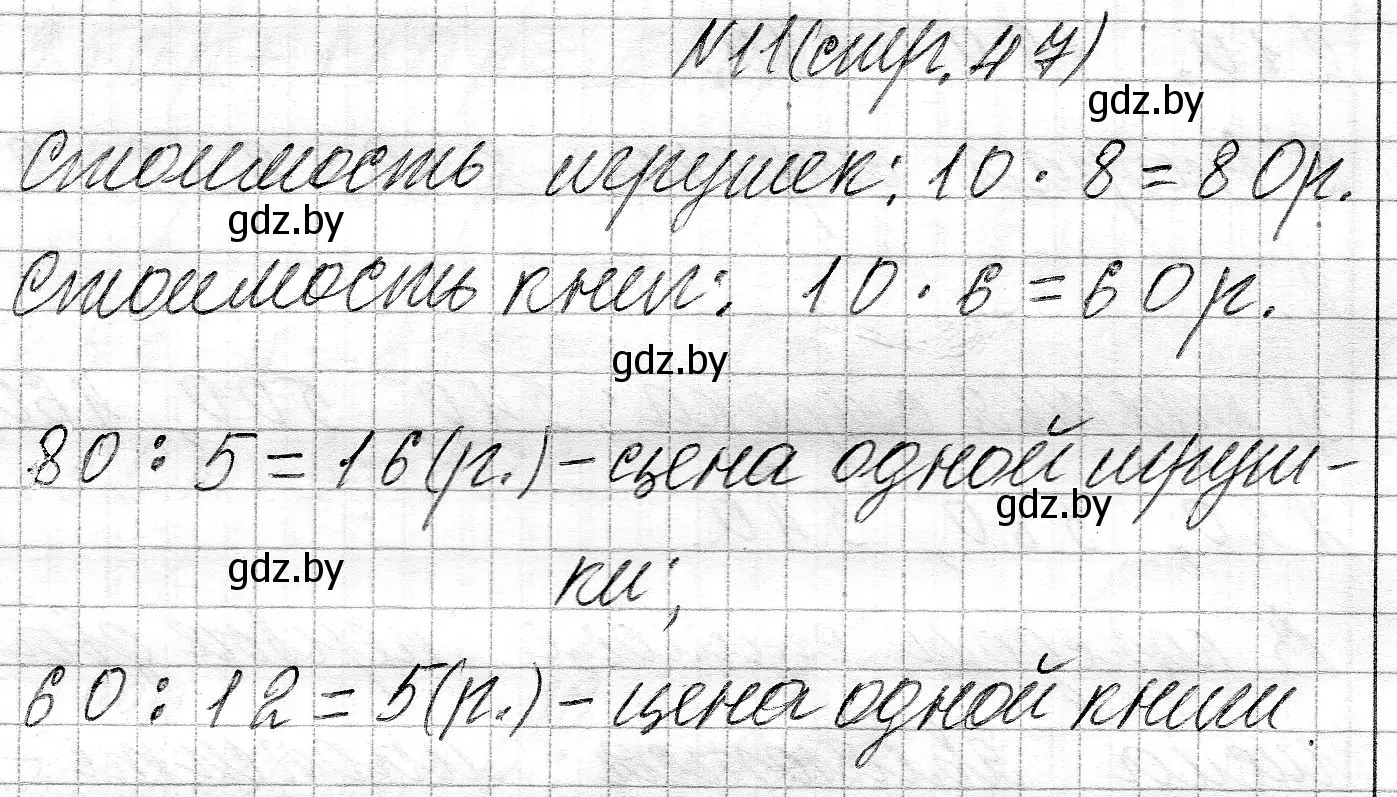 N11(стр. 47)
gdz.by
Стоимость игрушек: 10 · 8 = 80р.
gdz.by
Стоимость книг: 10 · 6 = 60р.
gdz.by
80 : 5 = 16(р.) – цена одной игруш-
gdz.by
gdz.by
ки;
60 : 12 = 5(р.) – цена одной книги